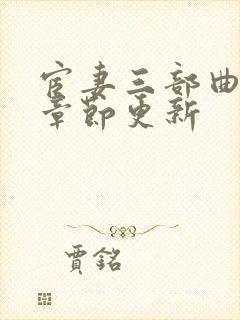 宦妻三部曲
章節更新
賈銘